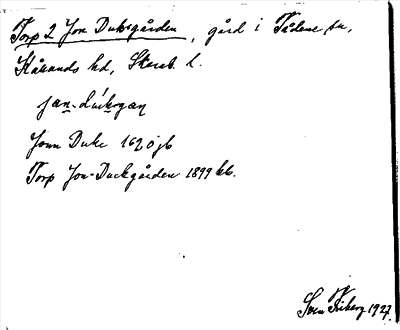 Torp 2 Jon Duksgården, gård i Tådene sn,
Kållands hd, Skarab. l.
jan-dúkagan
Jonn Duke 1620 jb
Torp Jon-Duckgården 1899 kb.
Sven Friberg 1927.